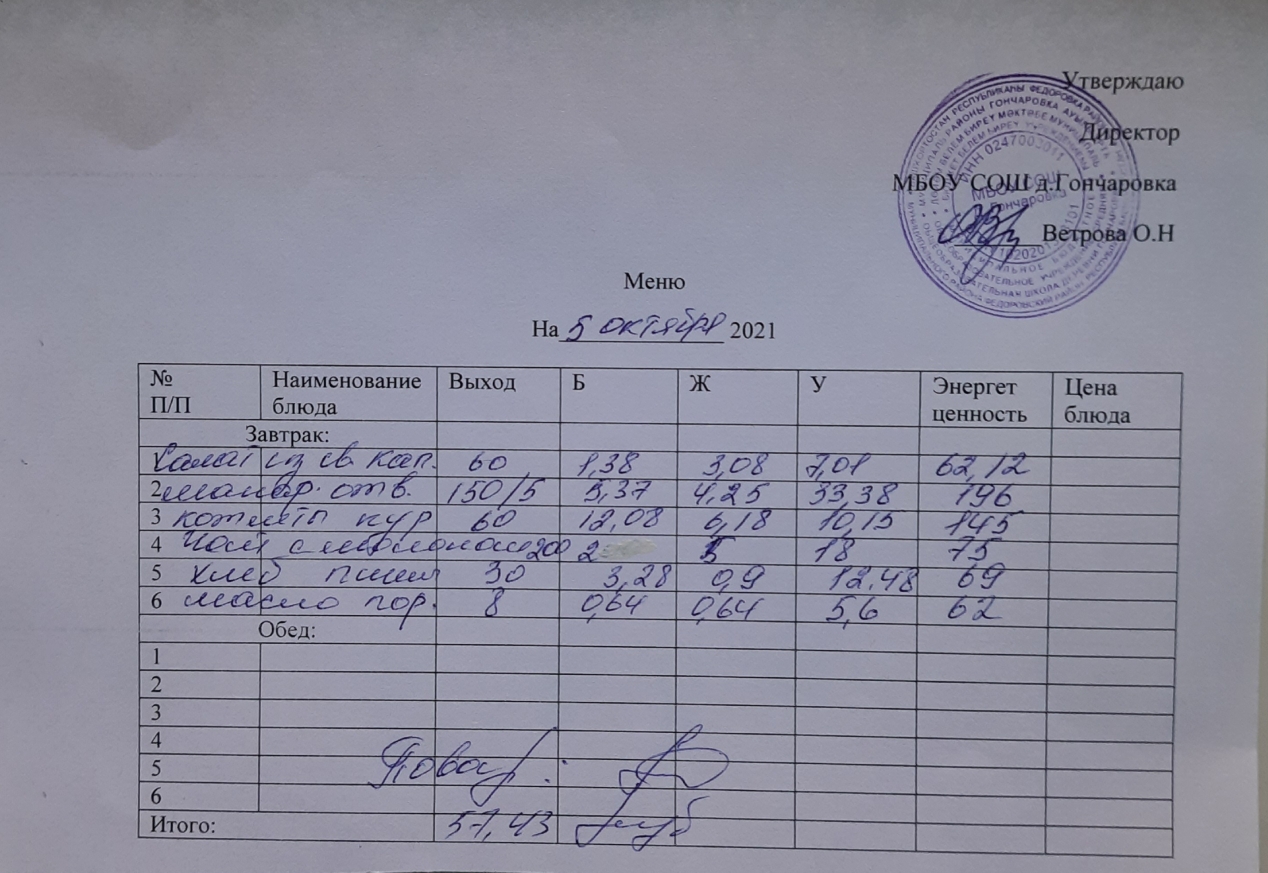 Утверждаю
Директор
МБОУ СОШ д.Гончаровка
Ветрова О.Н
ИНН 0247003011
МБОУ СОШ
Гончаровка
Меню
На 5 октября 2021
№ П/П Наименование блюда Выход Б Ж У Энергет ценность Цена блюда
Завтрак:
Салат из св. кап. 60 1,38 3,08 7,01 62,12
2 макар. отв. 150/5 5,37 4,25 33,38 196
3 котлеты кур 60 12,08 6,18 10,15 145
4 Чай с молоком 200 2 18 75
5 хлеб пшен 30 3,28 0,9 12.48 69
6 масло гор. 8 0,64 0,64 5,6 62
Обед:
1
2
3
4
5
6
Повар:
Итого: 57,43 руб